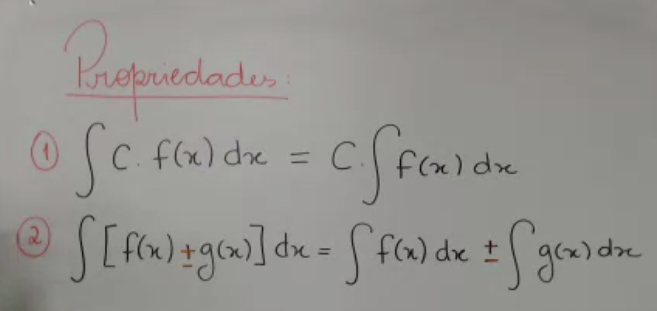 Propriedades:
① ∫ C. f(x) dx = C. ∫ f(x) dx
② ∫ [f(x) ± g(x)] dx = ∫ f(x) dx ± ∫ g(x) dx